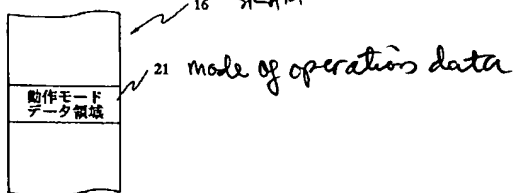 16
21 mode of operation data
動作モード
データ領域